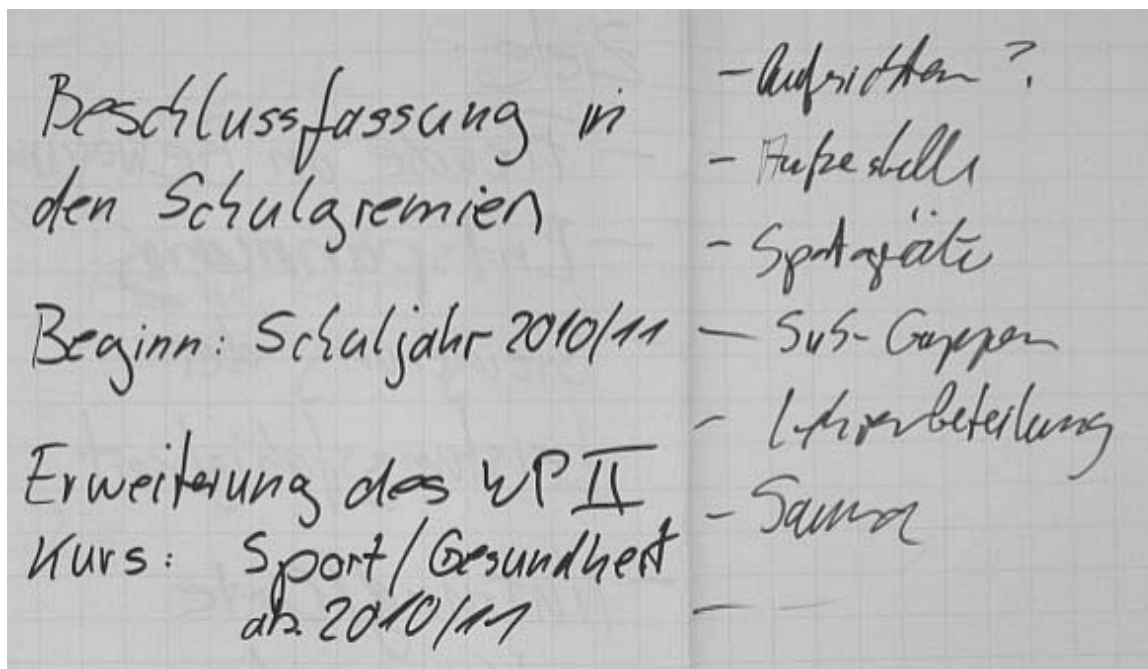 Beschlussfassung in
den Schulgremien
Beginn: Schuljahr 2010/11
Erweiterung des WP II
Kurs: Sport/Gesundheit
ab 2010/11
- Aufsichten?
-
- Sportgeräte
- SuS-Gruppen
- Lehrerbeteilung
- Sauna
-